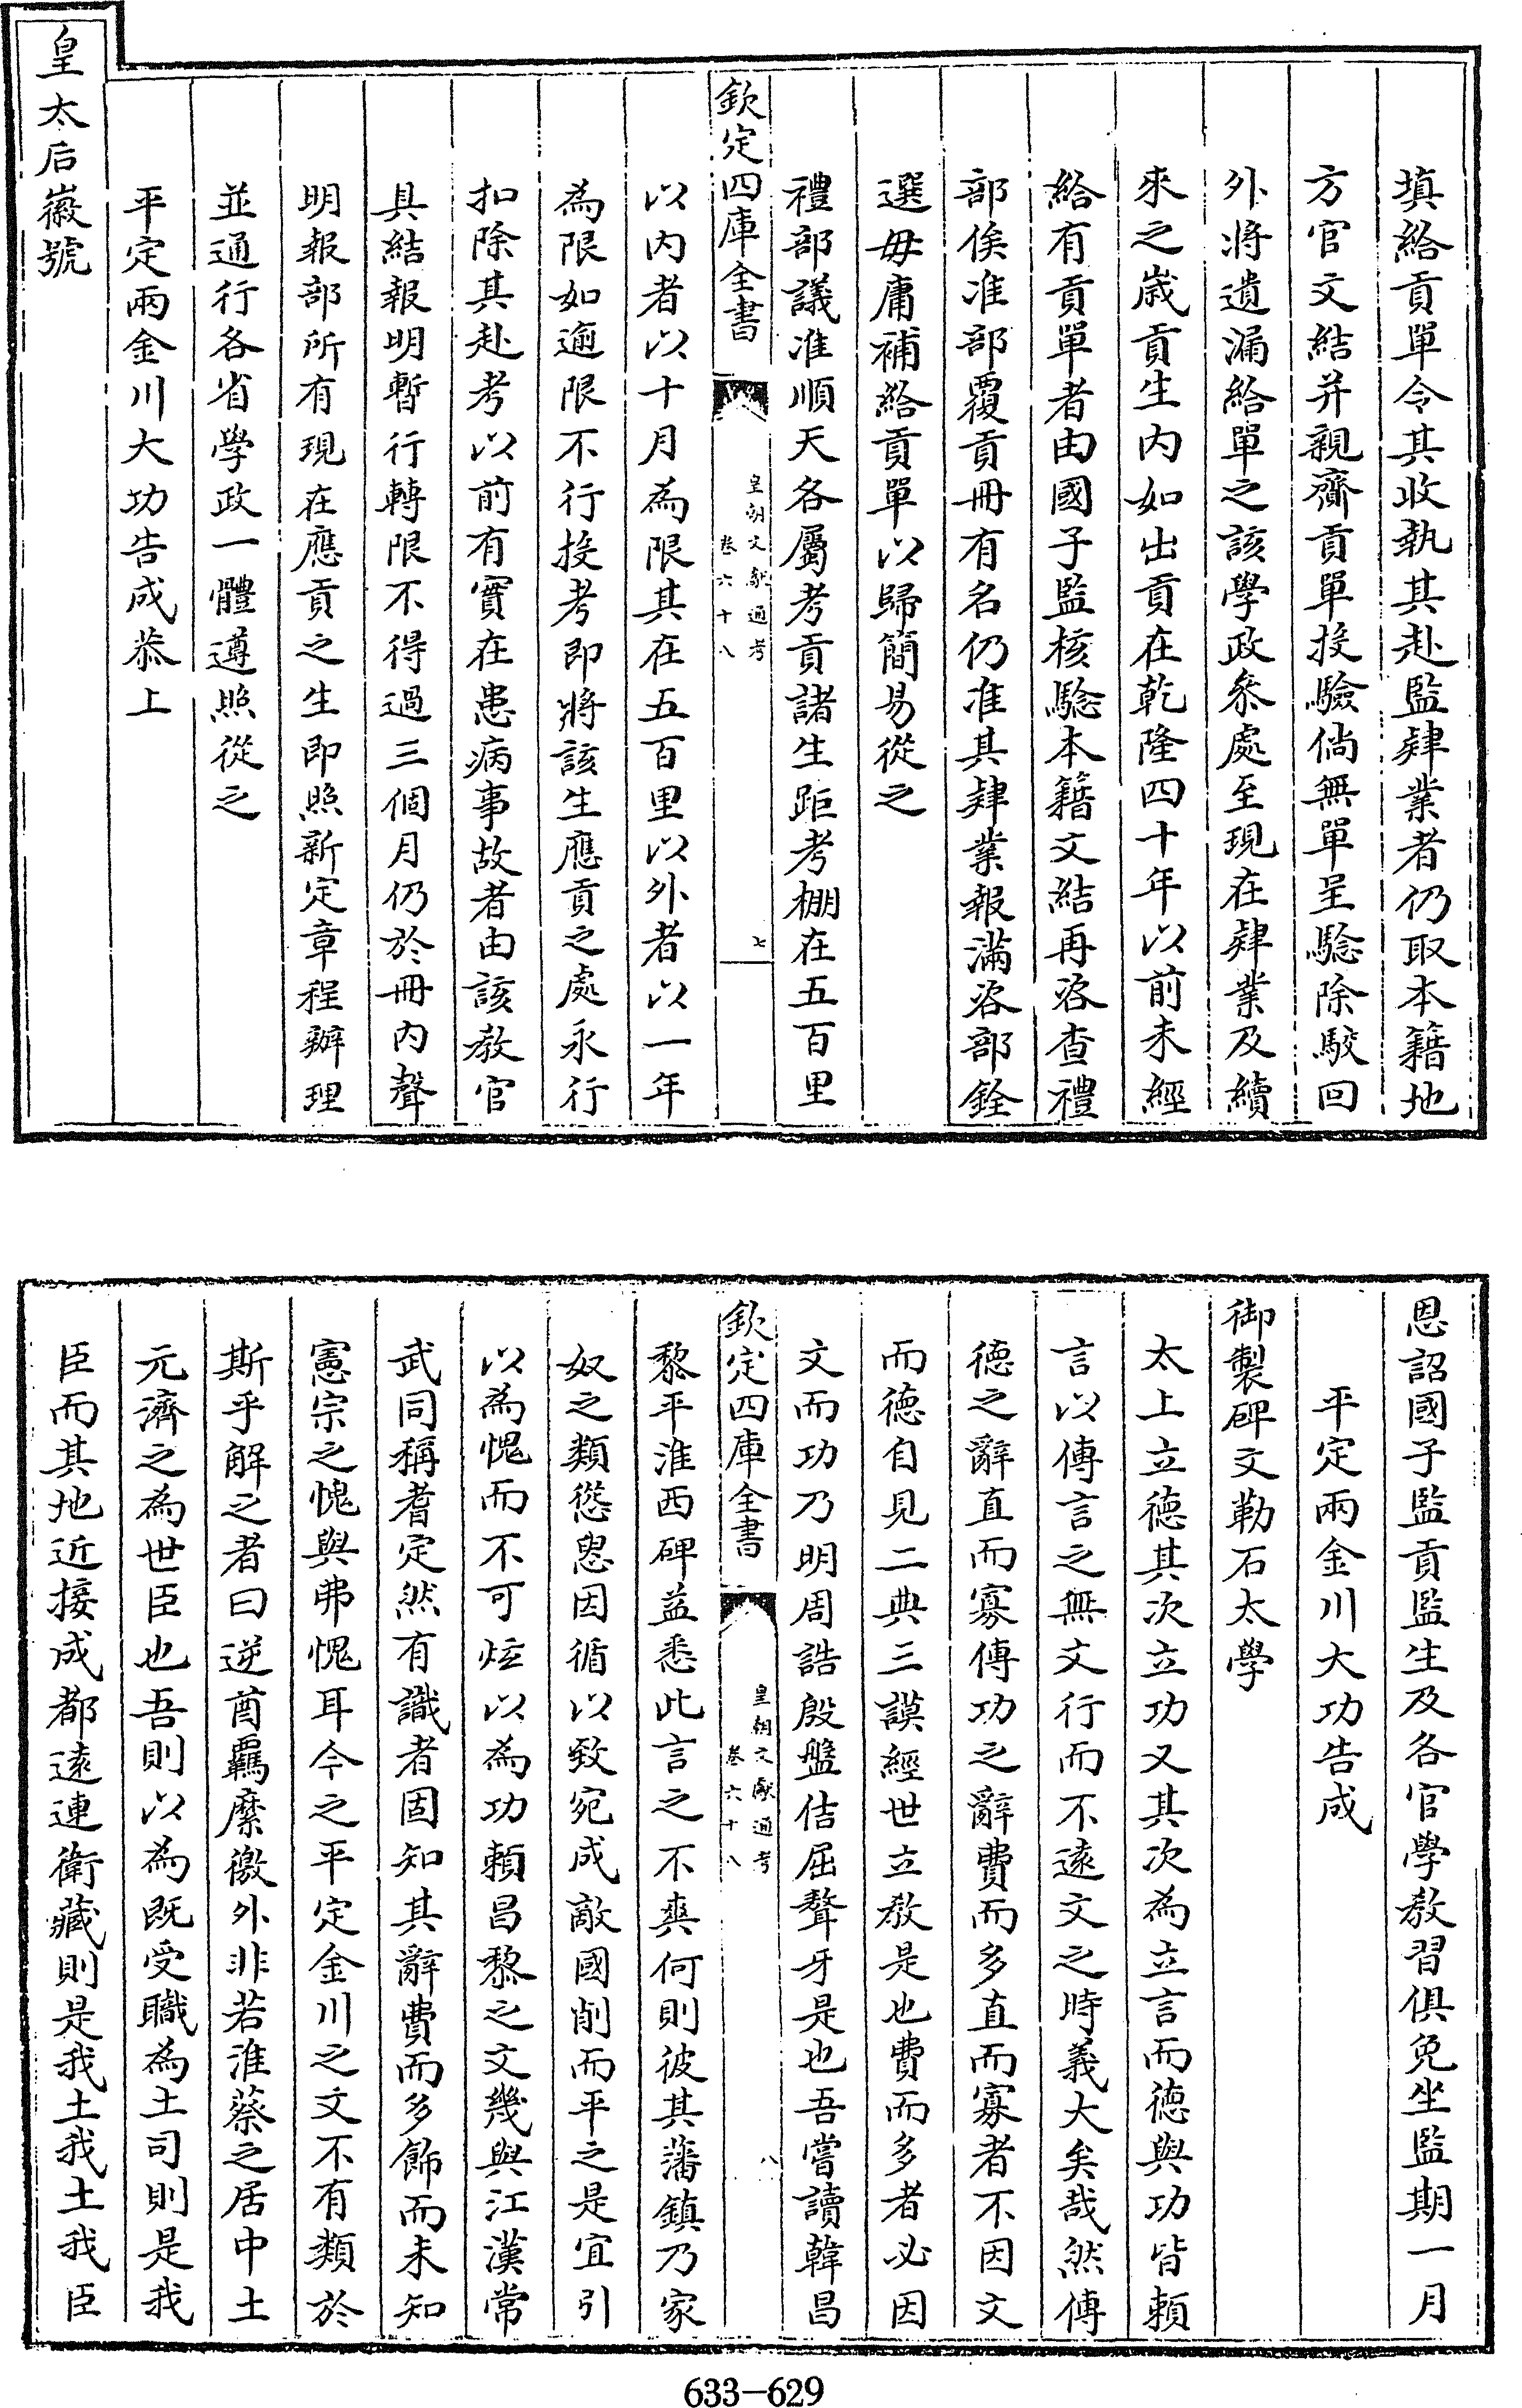 填給貢單令其收執其赴監肄業者仍取本籍地
方官文結并親齎貢單投驗倘無單呈驗除駁回
外將遺漏給單之該學政叅處至現在肄業及續
來之歲貢生内如出貢在乾隆四十年以前未經
給有貢單者由國子監核驗本籍文結再咨查禮
部俟准部覆貢冊有名仍准其肄業報滿咨部銓
選毋庸補給貢單以歸簡易從之
禮部議准順天各屬考貢諸生距考棚在五百里
欽定四庫全書
皇朝文獻通考
卷六十八
七
以内者以十月為限其在五百里以外者以一年
為限如逾限不行投考即將該生應貢之處永行
扣除其赴考以前有實在患病事故者由該教官
具結報明暫行轉限不得過三個月仍於冊内聲
明報部所有現在應貢之生即照新定章程辦理
並通行各省學政一體遵照從之
平定兩金川大功告成恭上
皇太后徽號
恩詔國子監貢監生及各官學教習俱免坐監期一月
平定兩金川大功告成
御製碑文勒石太學
太上立德其次立功又其次為立言而德與功皆賴
言以傳言之無文行而不遠文之時義大矣哉然傳
德之辭直而寡傳功之辭費而多直而寡者不因文
而德自見二典三謨經世立教是也費而多者必因
文而功乃明周誥殷盤佶屈聱牙是也吾嘗讀韓昌
欽定四庫全書
皇朝文獻通考
卷六十八
八
黎平淮西碑益悉此言之不爽何則彼其藩鎮乃家
奴之類慫恿因循以致宛成敵國削而平之是宜引
以為愧而不可炫以為功賴昌黎之文幾與江漢常
武同稱耆定然有識者固知其辭費而多飾而未知
憲宗之愧與弗愧耳今之平定金川之文不有類於
斯乎解之者曰逆酋羈縻徼外非若淮蔡之居中土
元濟之為世臣也吾則以為既受職為土司則是我
臣而其地近接成都遠連衛藏則是我土我土我臣
633-629